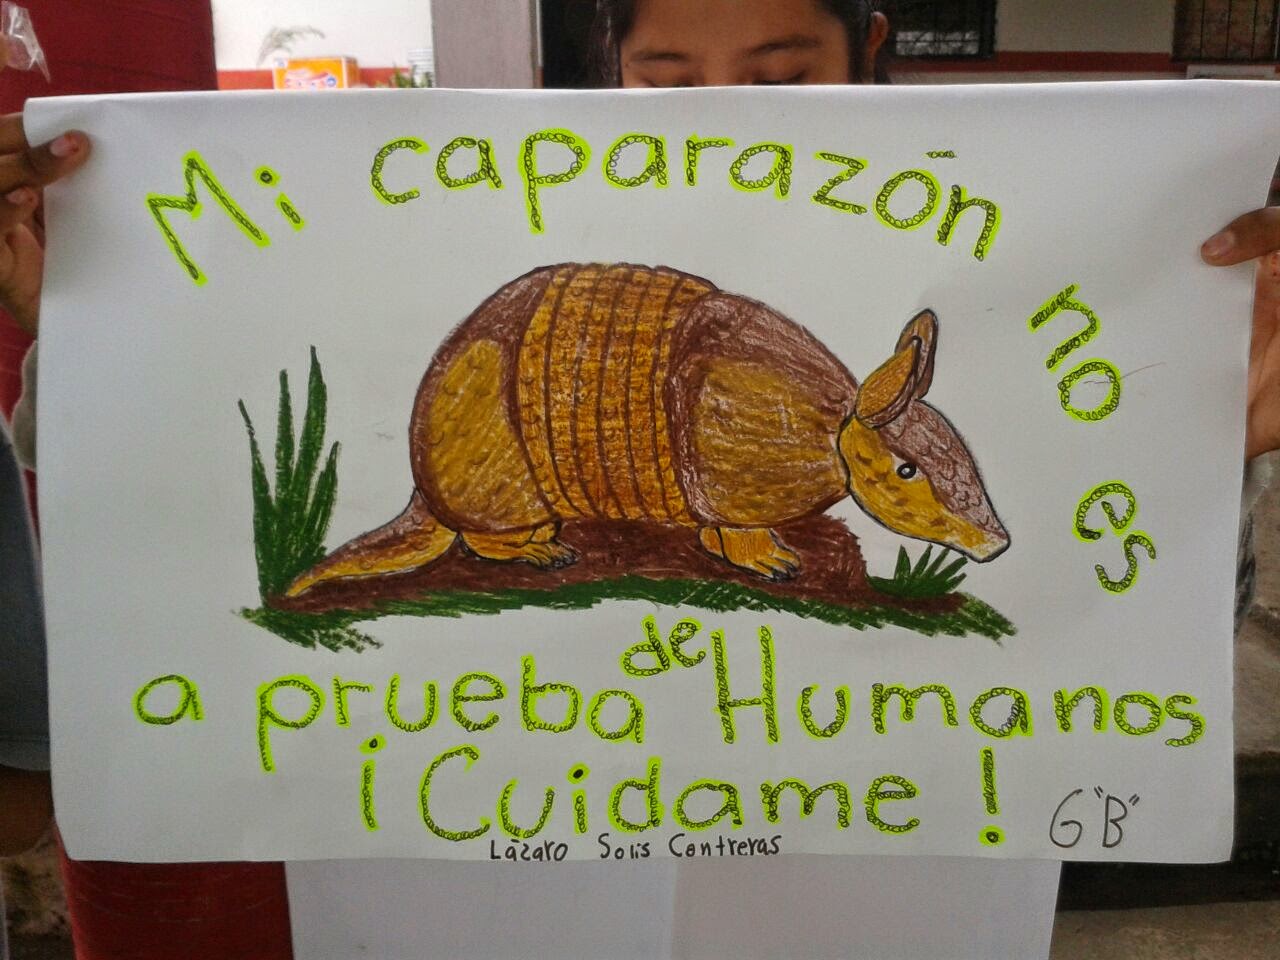 Mi caparazón no es
a prueba de Humanos
¡Cuidame!
6 "B"
Lázaro Solis Contreras